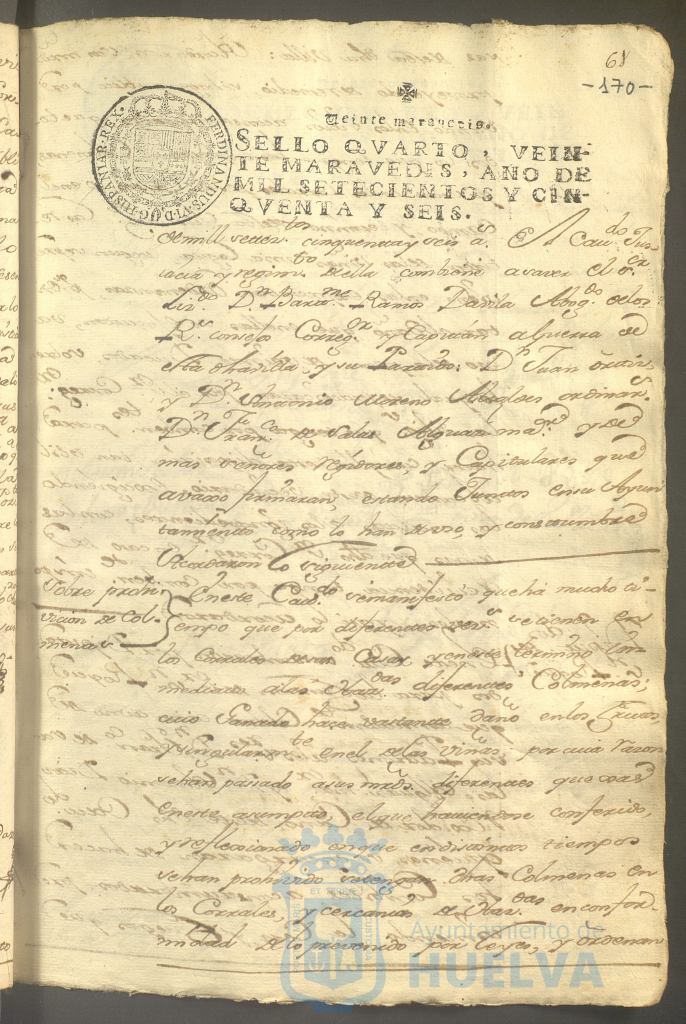 68
-170-
Veinte maravedis.
SELLO QVARTO, VEIN-
TE MARAVEDIS, AÑO DE
MIL SETECIENTOS Y CIN-
QVENTA Y SEIS.
FERDINANDUS·VI·D·G·HISPANIAR·REX·
de mill settez.tos cinquenta y seis a.s El Cau.do Jus-
ticia y regim.to de ella combiene a saver el s.r
Liz.do D.n Barto.me Ramos Davila Abog.do de los
R.s consejos Correg.or y Capitan a Guerra de
esta dha villa, y su Partido: D.n Juan
y D.n Antonio Moreno Alcaldes ordinar.s
D.n Fran.co de Salas Alguazil ma.or y de
mas señores rejidores, y Capitulares que
avaxo firmaran, estando Juntos en su Ayun
tamiento como lo han de uso, y costumbre
Acordaron lo siguiente
Sobre prohi-
vicion de Col-
menas
En este Cau.do se manifestó que há mucho ti-
empo que por diferentes vez.s se tienen en
los Corrales de sus Casas y en este termino
mediato a las diferentes Colmenas;
cuio Ganado haze vastante daño en los
y singularm.te en el de las viñas; por cuia razon
se han pasado a sus m.rds diferentes quexas
en este asumpto, el que haviendose conferido,
y reflexionado en que en distintos tiempos
se han prohivido se tengan dhas Colmenas en
los Corrales, y cercanias de en confor-
midad de lo prevenido por Leyes, y ordenan
Ayuntamiento de
HUELVA